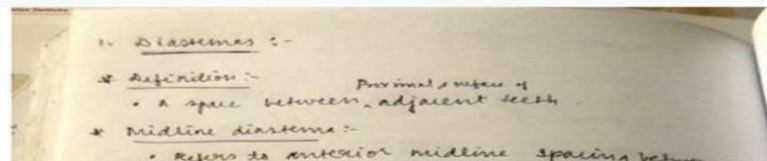 1. Diastemas :-
* Definition :-
• A space between proximal surface of adjacent teeth
* Midline diastema :-
• Refers to anterior midline spacing between